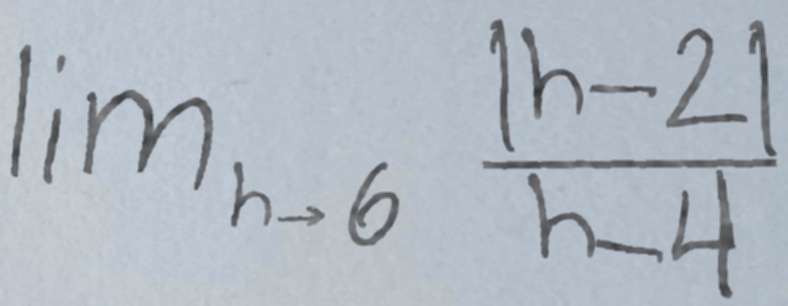 lim h→6 |h-2| / h-4